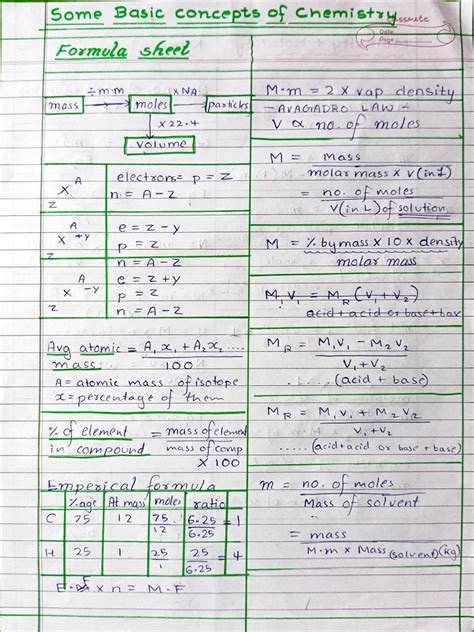 Some Basic concepts of Chemistry
classmate
Date
Page
Formula sheet
÷m·m ×NA
mass → moles → particles
↓ ×22.4
volume
X A Z
electrons = p = Z
n = A-Z
X A +y Z
e = Z-y
p = Z
n = A-Z
X A -y Z
e = Z+y
p = Z
n = A-Z
Avg atomic mass = A₁x₁ + A₂x₂ ..... / 100
A = atomic mass of isotope
x = percentage of them
% of element in compound = mass of element / mass of comp × 100
Emperical formula
%age At mass moles ratio
C 75 12 75/12 6.25/6.25 = 1
H 25 1 25/1 25/6.25 = 4
E.F × n = M.F
M·m = 2 × vap density
- AVAGADRO LAW -
V ∝ no. of moles
M = Mass / molar mass × V(in L)
= no. of moles / V(in L) of solution
M = % by mass × 10 × density / molar mass
M₁V₁ = MR (V₁+V₂)
acid+acid or base+base
MR = M₁V₁ - M₂V₂ / V₁+V₂
...... (acid + base)
MR = M₁V₁ + M₂V₂ / V₁+V₂
.....(acid+acid or base+base)
m = no. of moles / Mass of solvent
= mass / M·m × Mass (solvent)(kg)